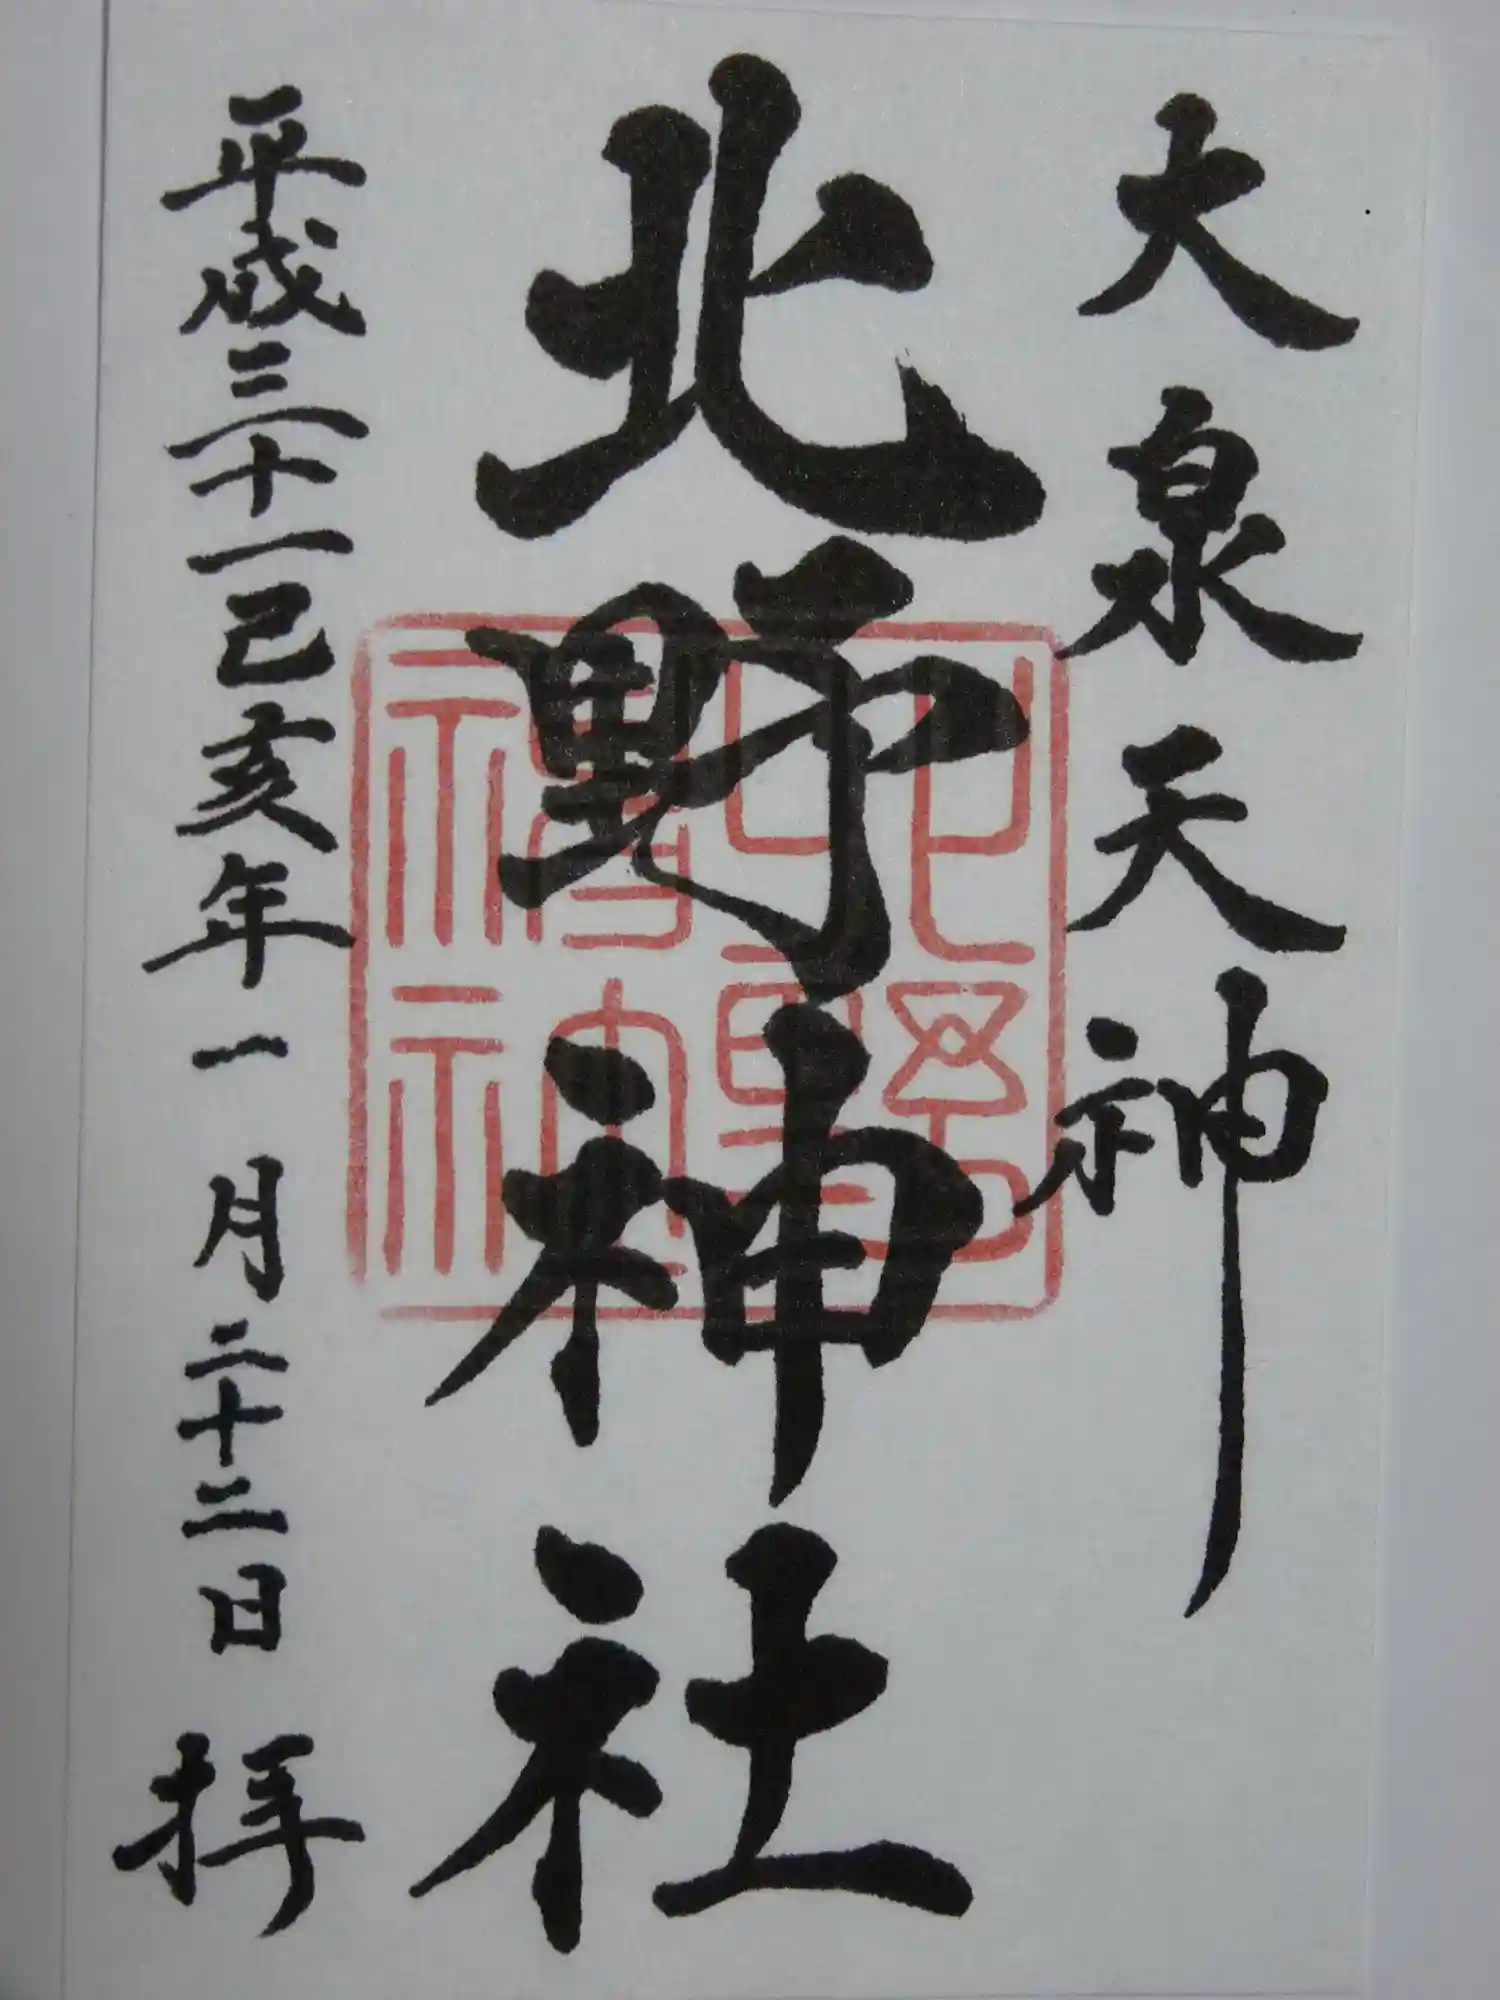 大泉天神
北野神社
平成三十一己亥年一月二十二日 拝